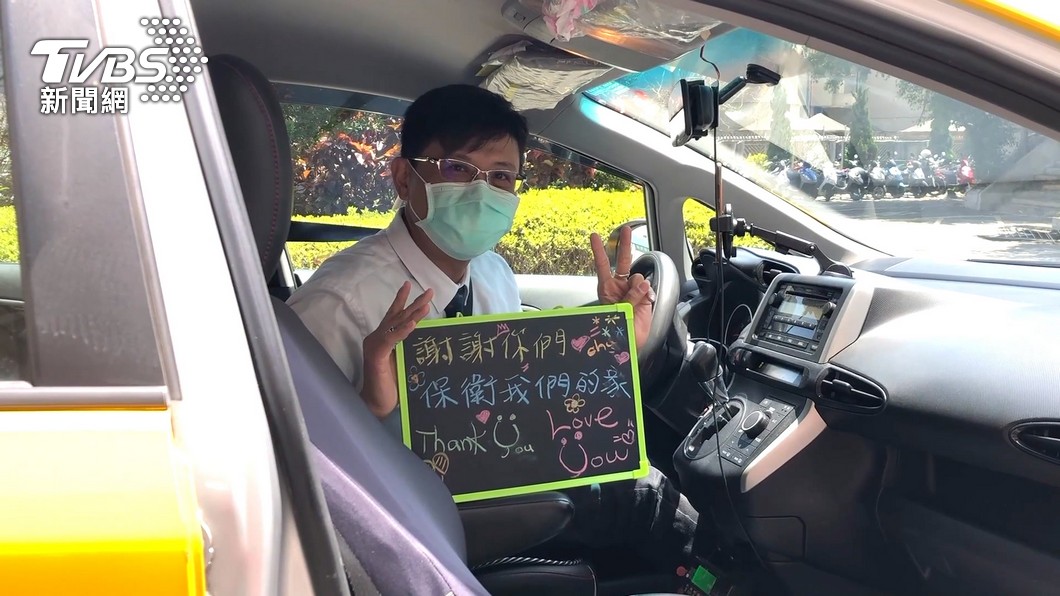 TVBS
新聞網
謝謝你們
保衛我們的家
Thank you
Love
you